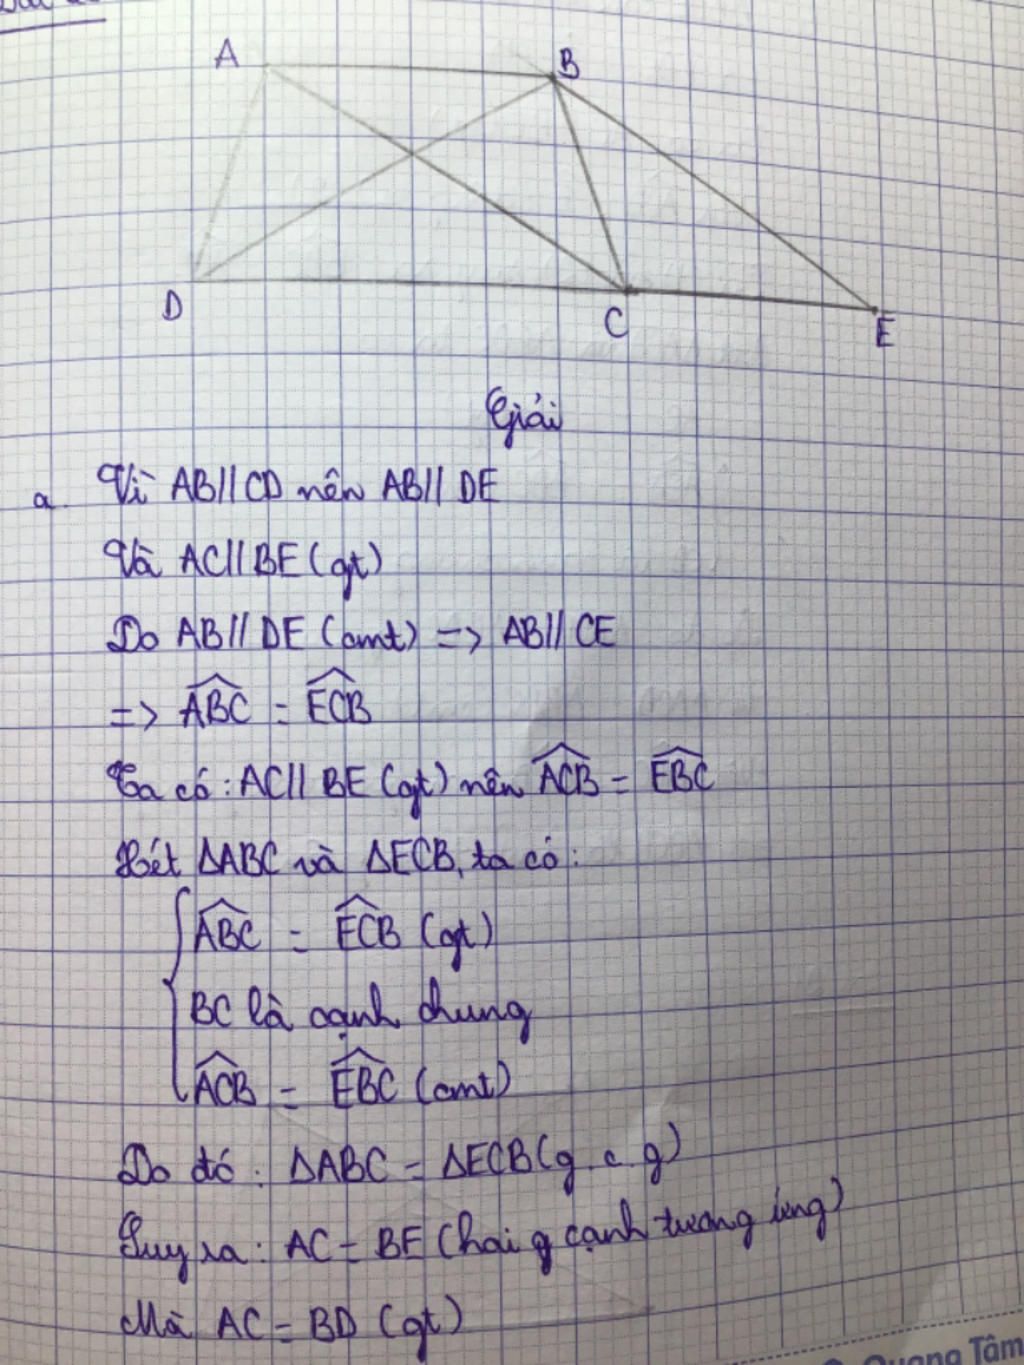 A
B
D
C
E
Giải
a. Vì AB//CD nên AB// DE
Và AC//BE (gt)
Do AB// DE (cmt) => AB// CE
=> ABC = ECB
Ta có: AC// BE (gt) nên ACB = EBC
Xét ΔABC và ΔECB, ta có:
ABC = ECB (gt)
BC là cạnh chung
ACB = EBC (cmt)
Do đó: ΔABC = ΔECB (g.c.g)
Suy ra: AC = BE (hai g cạnh tương ứng)
Mà AC = BD (gt)
Quang Tâm